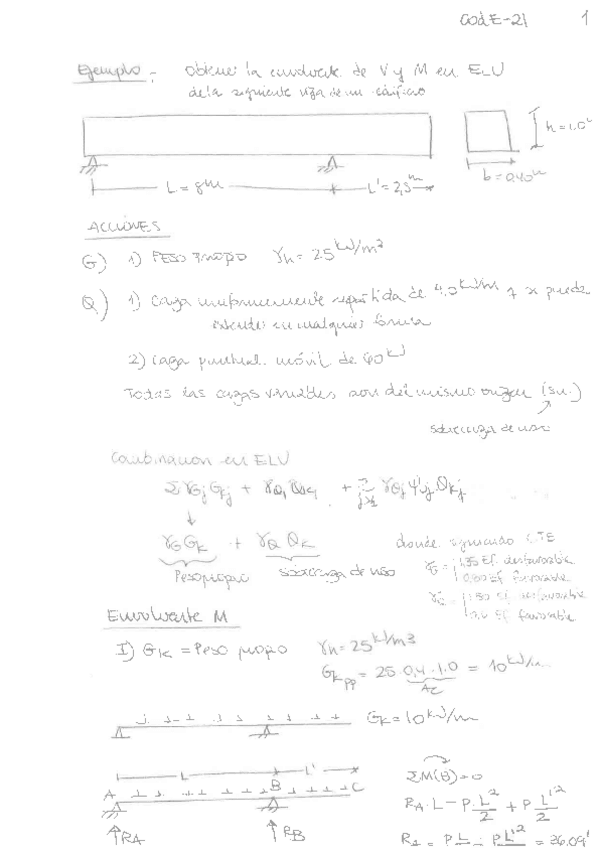 CodE-21 1
Ejemplo: Obtener la envolvente de V y M en ELU
de la siguiente viga de un edificio
h=1.0
L = 8m L'=2,5m b=0.40m
ACCIONES
G) 1) Peso propio γh = 25 kN/m³
Q) 1) Carga uniformemente repartida de 4,0 kN/m q se puede
extender en cualquier
2) Carga puntual móvil de 40 kN
Todas las cargas variables son del mismo origen (su.)
sobrecarga de uso
Combinacion en ELU
Σ γGj Gkj + γQ1 Qk1 + Σ j≥2 γQj ψ0j Qkj
↓
γG Gk + γQ Qk donde siguiendo CTE
Peso propio sobrecarga de uso
γG = 1,35 Ef. desfavorable
0,80 Ef. favorable
γQ = 1,50 Ef. desfavorable
0,0 Ef favorable
Envolvente M
I) Gk = Peso propio γh = 25 kN/m3
Gk pp = 25 · 0,4 · 1.0 = 10 kN/m
Ac
Gk = 10 kN/m
L L' ΣM(B)=0
A B C
RA · L - P L²/2 + P L'²/2
RA RB
RA = P L/2 - P L'²/2 = 36.09